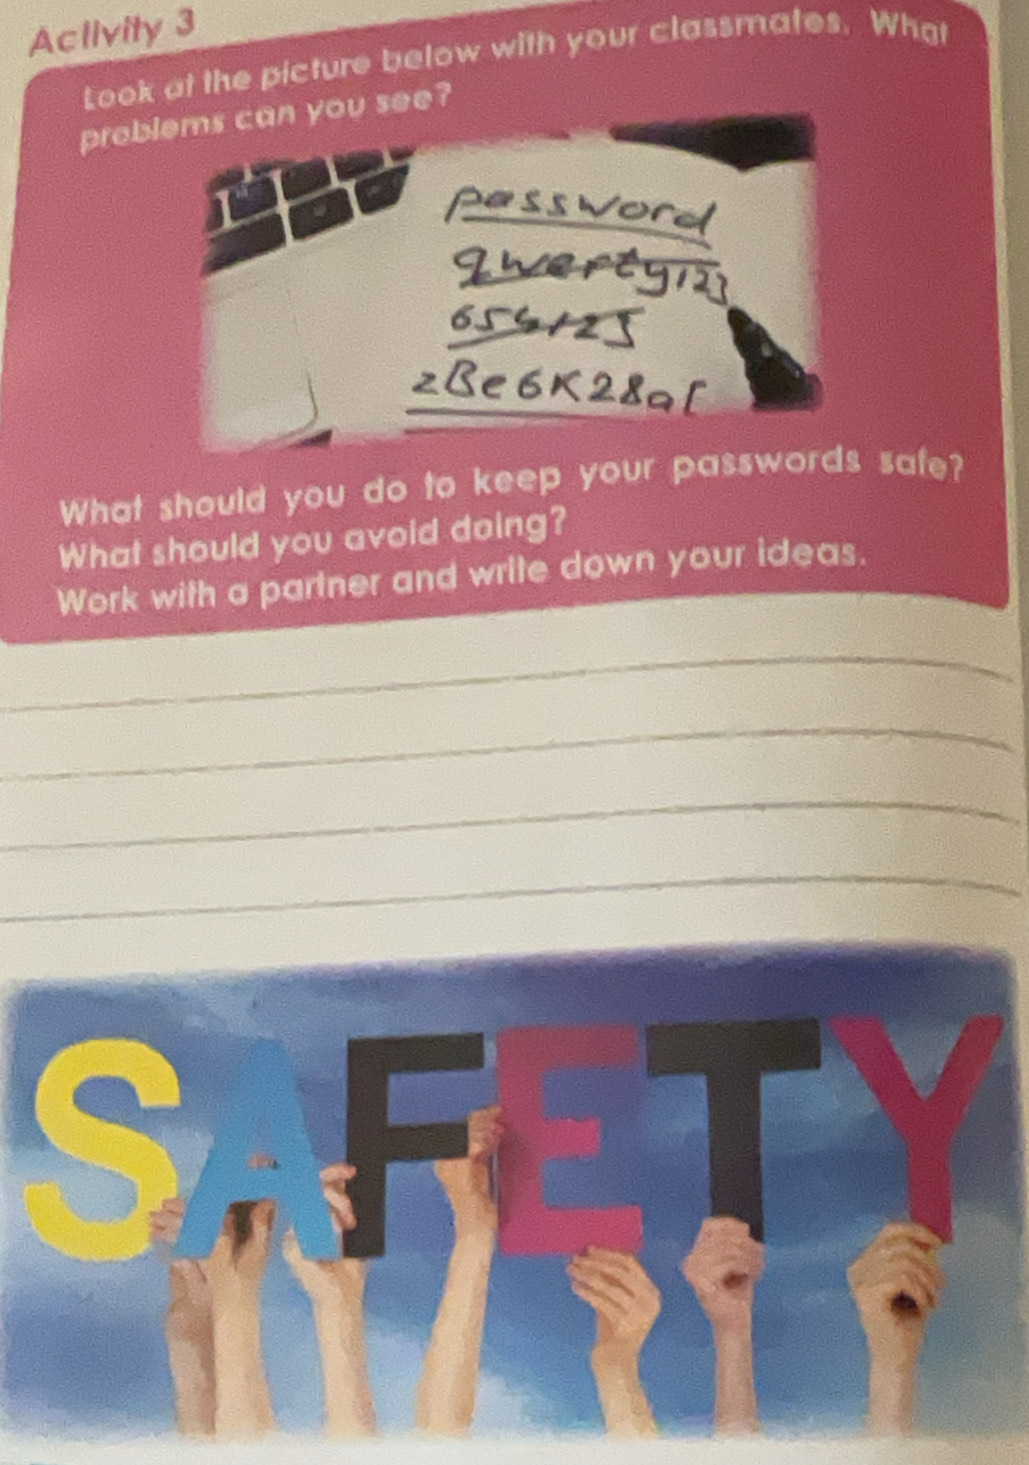 Activity 3
Look at the picture below with your classmates. What
problems can you see?
password
qwerty123
654123
zBe6K28af
What should you do to keep your passwords safe?
What should you avoid doing?
Work with a partner and write down your ideas.
SAFETY